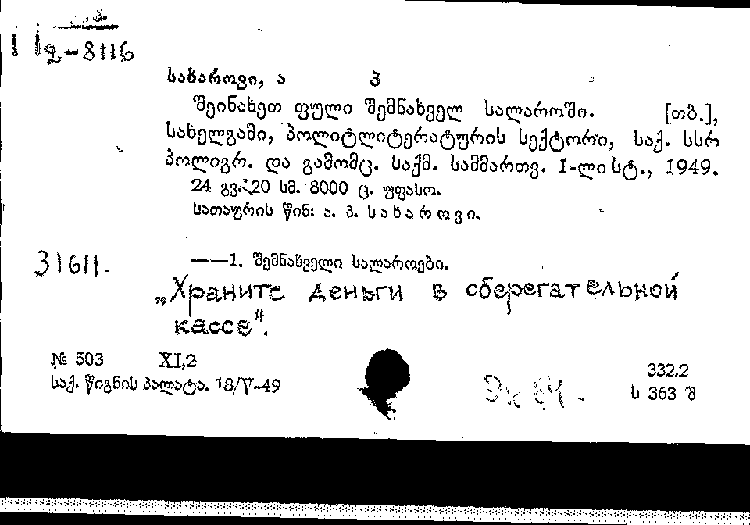 2-8116
სახაროვი, ა პ
შეინახეთ ფული შემნახველ სალაროში. [თბ.],
სახელგამი, პოლიტლიტერატურის სექტორი, საქ. სსრ
პოლიგრ. და გამომც. საქმ. სამმართვ. I-ლი სტ., 1949.
24 გვ. 20 სმ. 8000 ც. უფასო.
სათაურის წინ: ა. პ. სახაროვი.
31611.
——1. შემნახველი სალაროები.
„Храните деньги в сберегательной
кассе".
№ 503 XI,2
საქ. წიგნის პალატა. 18/V-49
332.2
ს 363 შ